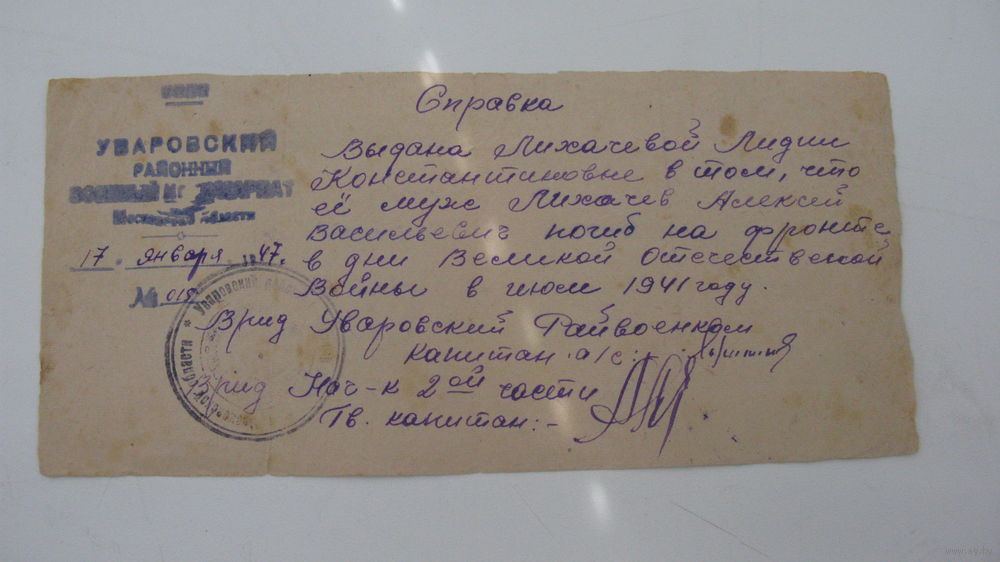 УВАРОВСКИЙ
РАЙОННЫЙ
ВОЕННЫЙ
Московской области
17 . января . 1947.
№ 015
Справка
Выдана Лихачевой Лидии
Константиновне в том, что
её муж Лихачев Алексей
Васильевич погиб на фронте
в дни Великой Отечественной
Войны в июле 1941 году.
Врид Уваровский Райвоенком
капитан а/с:-
Врид Нач-к 2ой части
Тв. капитан:-
Уваровский
области